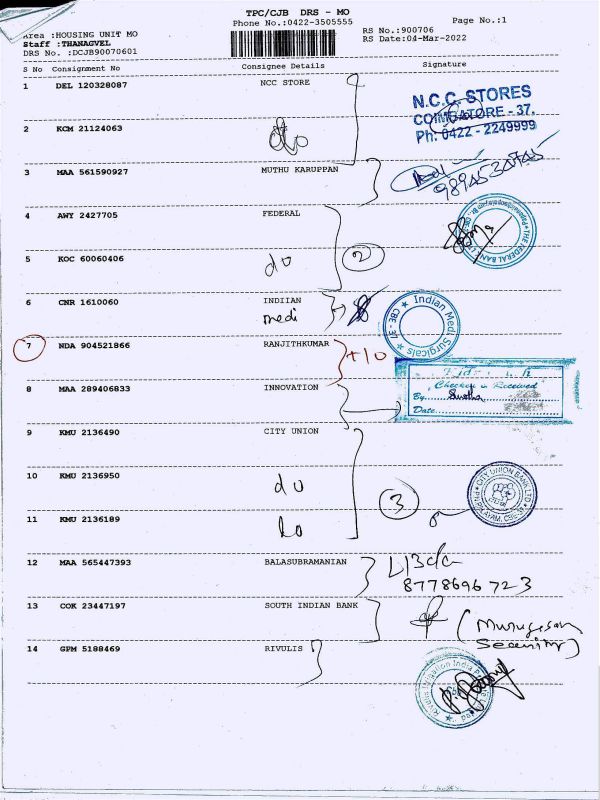 TPC/CJB DRS - MO
Phone No.:0422-3505555
Page No.:1
Area :HOUSING UNIT MO
RS No.:900706
Staff :THANAGVEL
RS Date:04-Mar-2022
DRS No. :DCJB90070601
S No Consignment No Consignee Details Signature
1 DEL 120328087 NCC STORE
N.C.C. STORES
COIMBATORE - 37.
Ph: 0422 - 2249999
2 KCM 21124063 do
3 MAA 561590927 MUTHU KARUPPAN
4 AWY 2427705 FEDERAL
THE FEDERAL BANK
5 KOC 60060406 do 2
6 CNR 1610060 INDIIAN
medi
Indian Medi Surgicals
CBE - 37
7 NDA 904521866 RANJITHKUMAR
8 MAA 289406833 INNOVATION
Checked & Received
By
Date
9 KMU 2136490 CITY UNION
10 KMU 2136950 do
11 KMU 2136189 do 3
CITY UNION BANK LTD
12 MAA 565447393 BALASUBRAMANIAN
8778696723
13 COK 23447197 SOUTH INDIAN BANK
(Murugesan
Security)
14 GPM 5188469 RIVULIS
Rivulis Irrigation India Private Limited